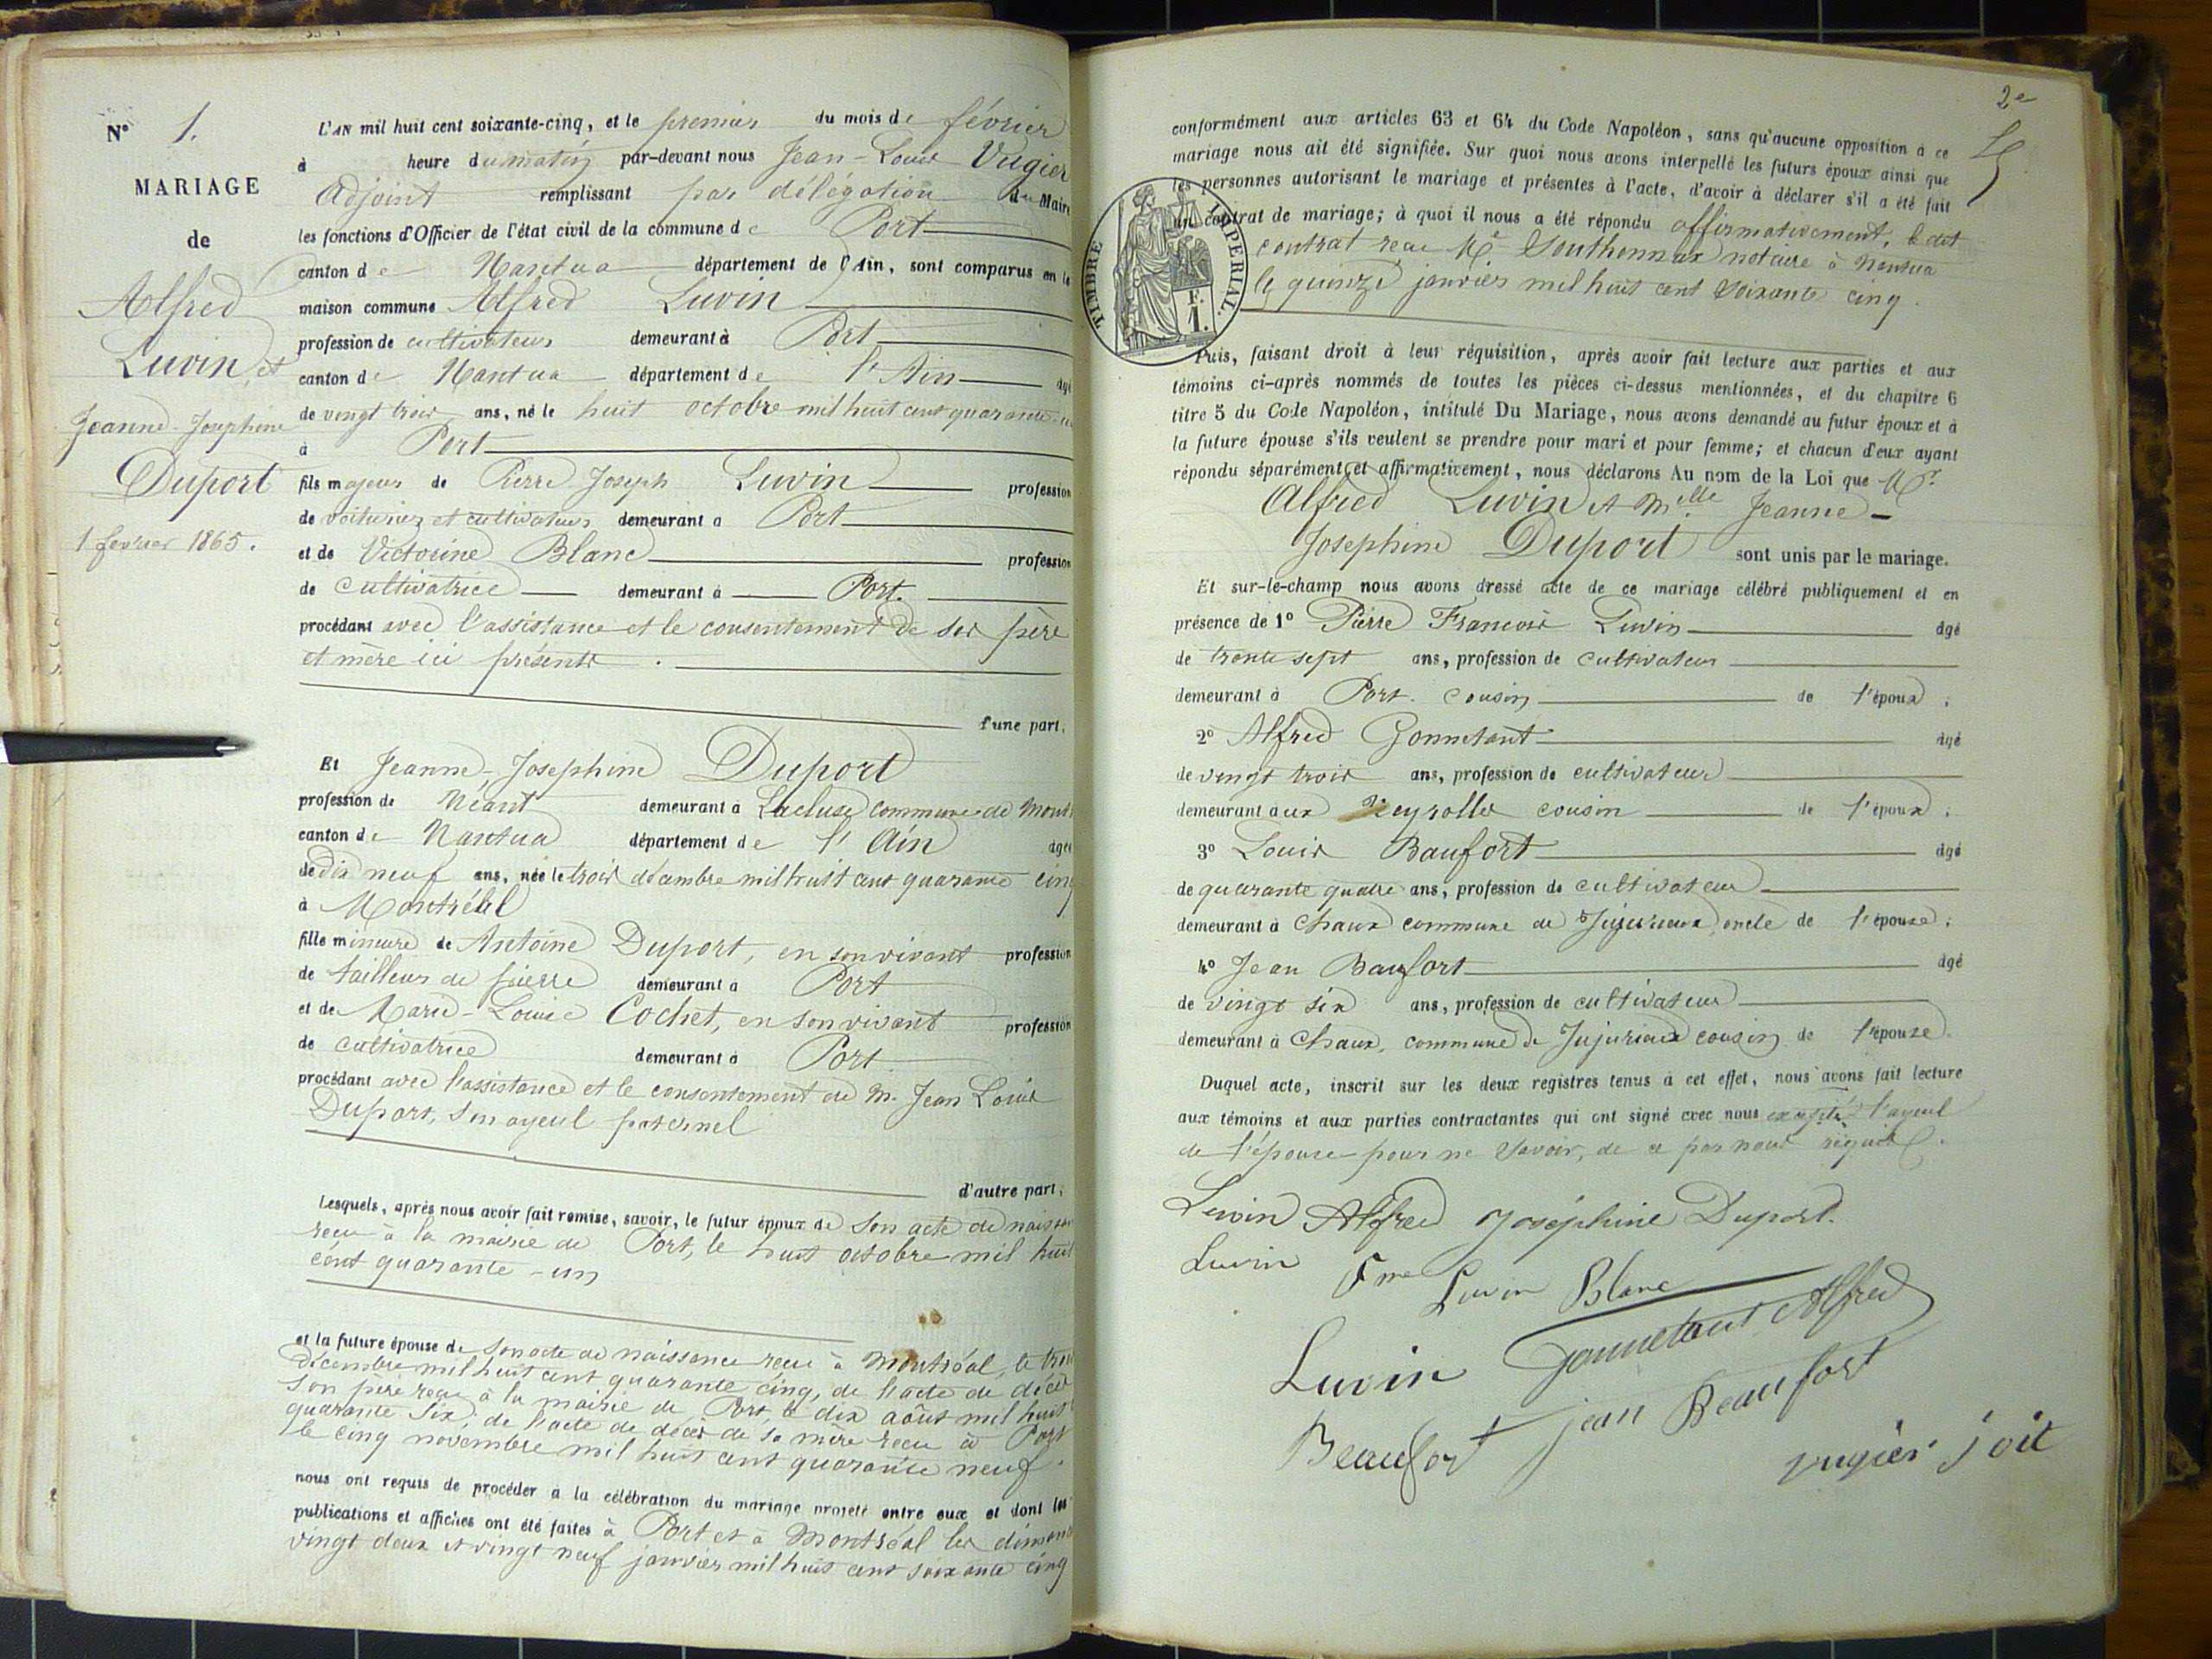 N° 1.
MARIAGE
de
Alfred
Luvin et
Jeanne-Josephine
Duport
1 fevrier 1865.
L'AN mil huit cent soixante-cinq, et le premier du mois de février
à heure du matin par-devant nous Jean-Louis Vugier
Adjoint remplissant par délégation du Maire
les fonctions d'Officier de l'état civil de la commune de Port
canton de Nantua département de l'Ain, sont comparus en la
maison commune Alfred Luvin
profession de cultivateur demeurant à Port
canton de Nantua département de l'Ain âgé
de vingt trois ans, né le huit octobre mil huit cent quarante-un
à Port
fils majeur de Pierre Joseph Luvin profession
de voiturier et cultivateur demeurant à Port
et de Victorine Blanc profession
de cultivatrice demeurant à Port.
procédant avec l'assistance et le consentement de ses père
et mère ici présents.
d'une part,
Et Jeanne-Josephine Duport
profession de Néant demeurant à Lacluse commune de Mont
canton de Nantua département de l'Ain âgée
de dix neuf ans, née le trois décembre mil huit cent quarante cinq
à Montréal
fille mineure de Antoine Duport, en son vivant profession
de tailleur de pierre demeurant à Port
et de Marie-Louise Cochet, en son vivant profession
de cultivatrice demeurant à Port
procédant avec l'assistance et le consentement de M. Jean Louis
Duport, son ayeul paternel
d'autre part;
Lesquels, après nous avoir fait remise, savoir, le futur époux de son acte de naissan
reçu à la mairie de Port, le huit octobre mil huit
cent quarante-un
et la future épouse de son acte de naissance reçu à Montréal, le trois
décembre mil huit cent quarante cinq, de l'acte de décès
son père reçu à la mairie de Port, le dix août mil huit
quarante six; de l'acte de décès de sa mère reçu à Port
le cinq novembre mil huit cent quarante neuf.
nous ont requis de procéder à la célébration du mariage projeté entre eux et dont les
publications et affiches ont été faites à Port et à Montréal les diman
vingt deux et vingt neuf janvier mil huit cent soixante cinq
2e
conformément aux articles 63 et 64 du Code Napoléon, sans qu'aucune opposition à ce
mariage nous ait été signifiée. Sur quoi nous avons interpellé les futurs époux ainsi que
les personnes autorisant le mariage et présentes à l'acte, d'avoir à déclarer s'il a été fait
un contrat de mariage; à quoi il nous a été répondu affirmativement, ledit
contrat reçu Me Southonnax notaire à Nantua
le quinze janvier mil huit cent soixante cinq.
TIMBRE IMPÉRIAL.
F.
1.
Puis, faisant droit à leur réquisition, après avoir fait lecture aux parties et aux
témoins ci-après nommés de toutes les pièces ci-dessus mentionnées, et du chapitre 6
titre 5 du Code Napoléon, intitulé Du Mariage, nous avons demandé au futur époux et à
la future épouse s'ils veulent se prendre pour mari et pour femme; et chacun d'eux ayant
répondu séparément et affirmativement, nous déclarons Au nom de la Loi que Mr
Alfred Luvin et Melle Jeanne-
Josephine Duport sont unis par le mariage.
Et sur-le-champ nous avons dressé acte de ce mariage célébré publiquement et en
présence de 1° Pierre François Luvin âgé
de trente sept ans, profession de cultivateur
demeurant à Port. cousin de l'époux;
2° Alfred Gonnetant âgé
de vingt trois ans, profession de cultivateur
demeurant aux Neyrolles cousin de l'époux;
3° Louis Baufort âgé
de quarante quatre ans, profession de cultivateur
demeurant à Chaux commune de Jujurieux oncle de l'épouse;
4° Jean Baufort âgé
de vingt six ans, profession de cultivateur
demeurant à Chaux, commune de Jujurieux cousin de l'épouse.
Duquel acte, inscrit sur les deux registres tenus à cet effet, nous avons fait lecture
aux témoins et aux parties contractantes qui ont signé avec nous excepté l'ayeul
de l'épouse pour ne savoir, de ce par nous requis.
Luvin Alfred Joséphine Duport.
Luvin Fme Luvin Blanc
Luvin Gonnetant Alfred
Beaufort jean Beaufort
vugier joit